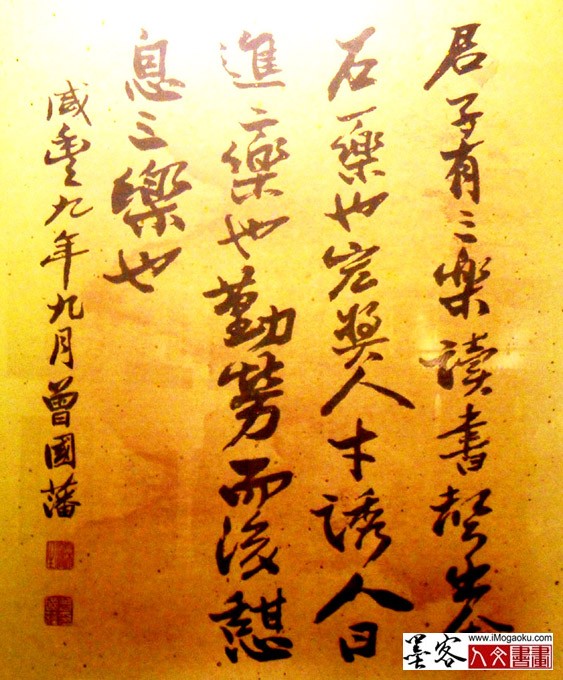 君子有三樂讀書聲出金
石一樂也宏獎人才誘人日
進二樂也勤勞而後憩
息三樂也
咸豐九年九月曾國藩
www.iMogaoku.com
墨客
人文書畫